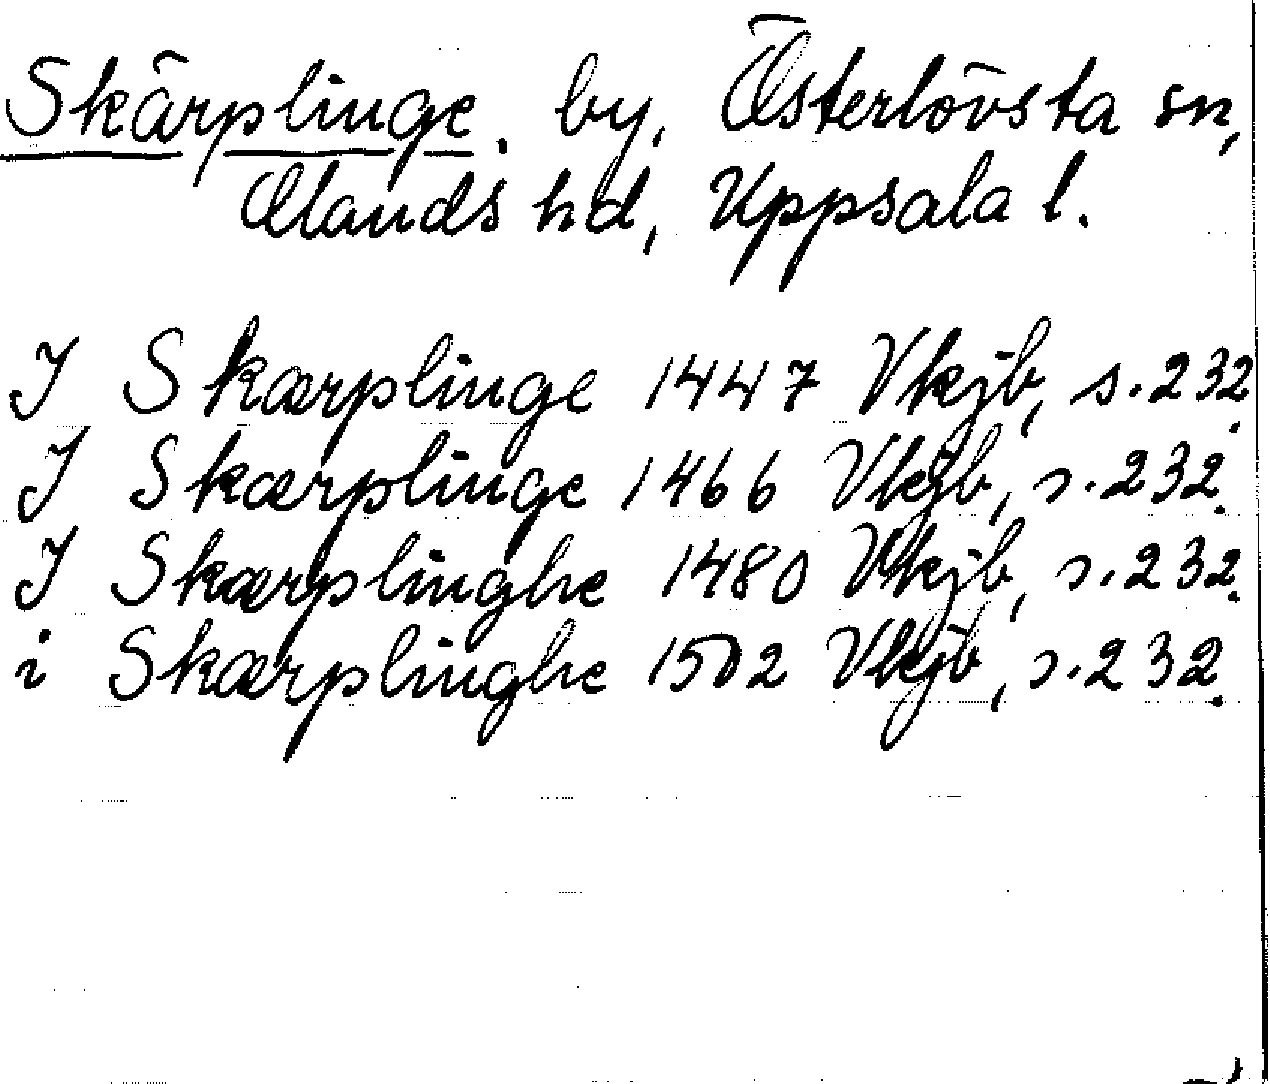 Skärplinge. by, Österlövsta sn,
Olands hd, Uppsala l.
J Skærplinge 1447 Vkjb, s. 232.
J Skærplinge 1466 Vkjb, s. 232.
J Skærplinghe 1480 Vkjb, s. 232.
i Skærplinghe 1502 Vkjb, s. 232.